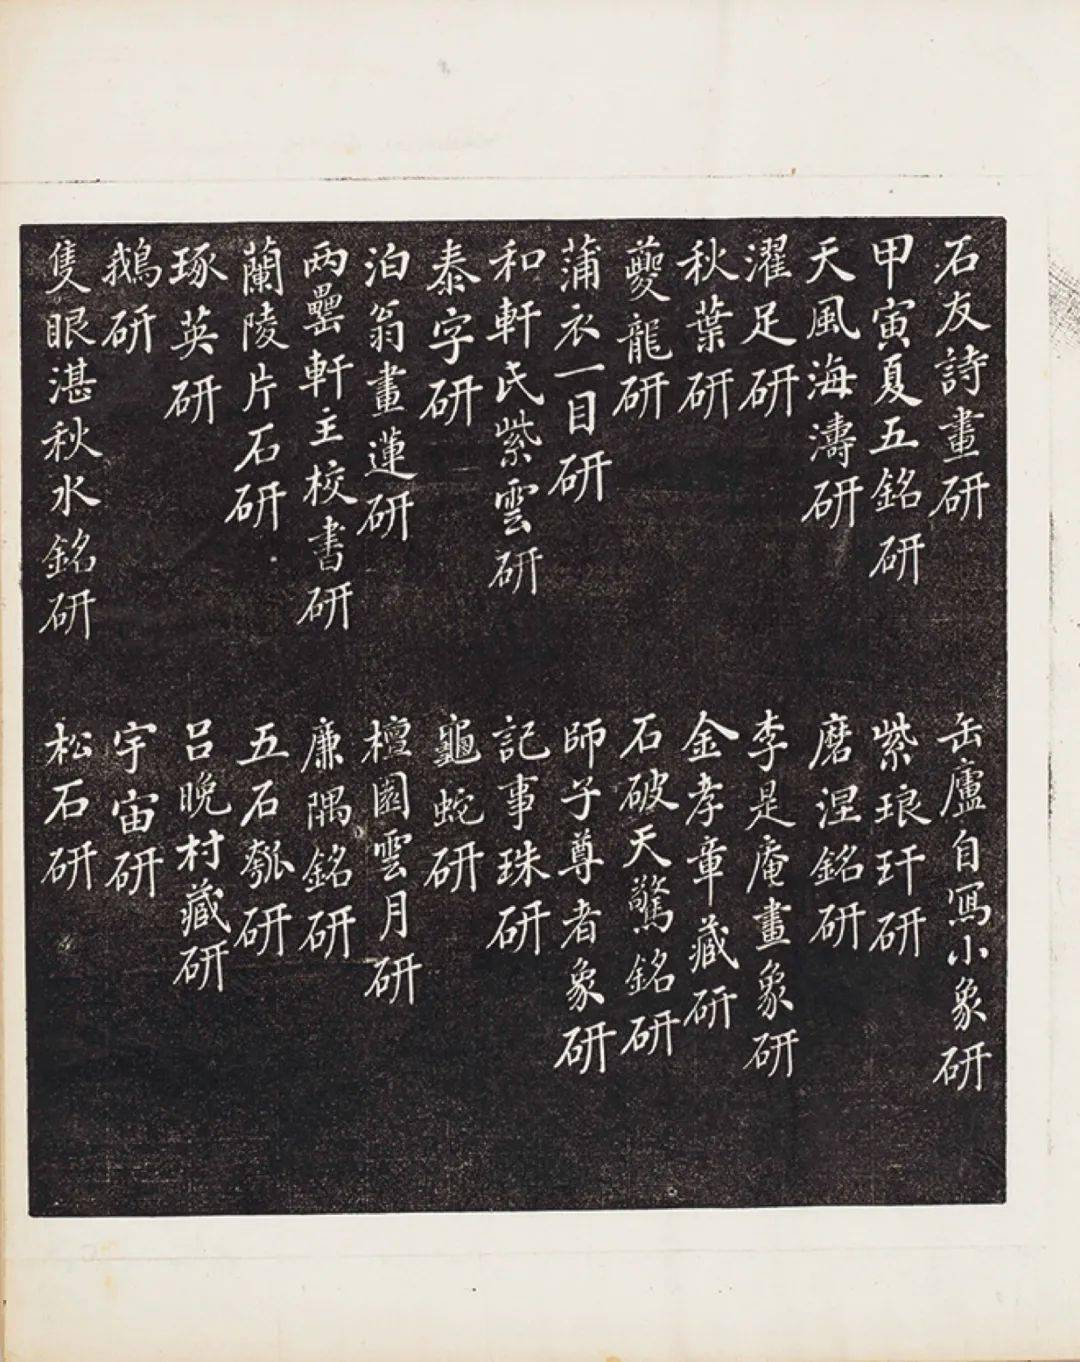 石友詩畫研
甲寅夏五銘研
天風海濤研
濯足研
秋葉研
夔龍研
蒲衣一目研
和軒氏紫雲研
泰字研
泊翁畫蓮研
兩罍軒主校書研
蘭陵片石研
琢英研
鵝研
隻眼湛秋水銘研
缶廬自寫小象研
紫琅玕研
磨涅銘研
李是庵畫象研
金孝章藏研
石破天驚銘研
師子尊者象研
記事珠研
龜蛇研
檀園雲月研
廉隅銘研
五石瓠研
呂晚村藏研
宇宙研
松石研